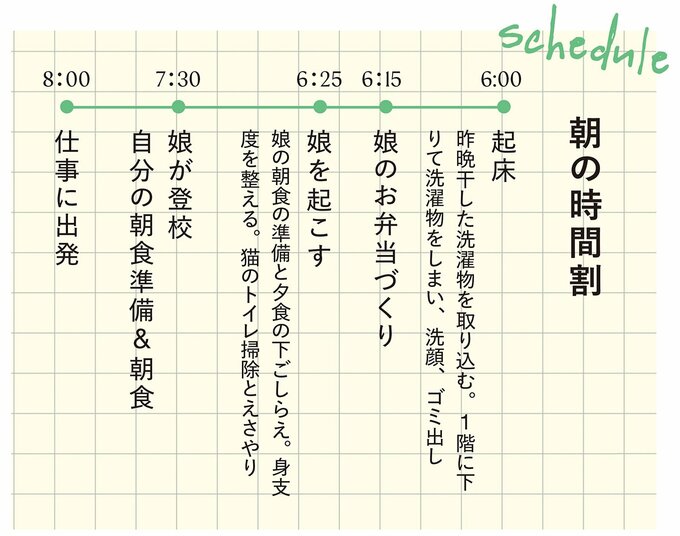 schedule
朝の時間割
6:00
起床
昨晩干した洗濯物を取り込む。1階に下
りて洗濯物をしまい、洗顔、ゴミ出し
6:15
娘のお弁当づくり
6:25
娘を起こす
娘の朝食の準備と夕食の下ごしらえ。身支
度を整える。猫のトイレ掃除とえさやり
7:30
娘が登校
自分の朝食準備&朝食
8:00
仕事に出発